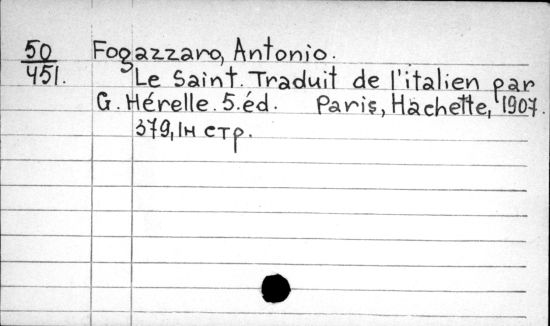 50 Fogazzaro, Antonio.
451. Le Saint. Traduit de l'italien par
G. Hérelle. 5.éd. Paris, Hachette, 1907.
379, 1н стр.